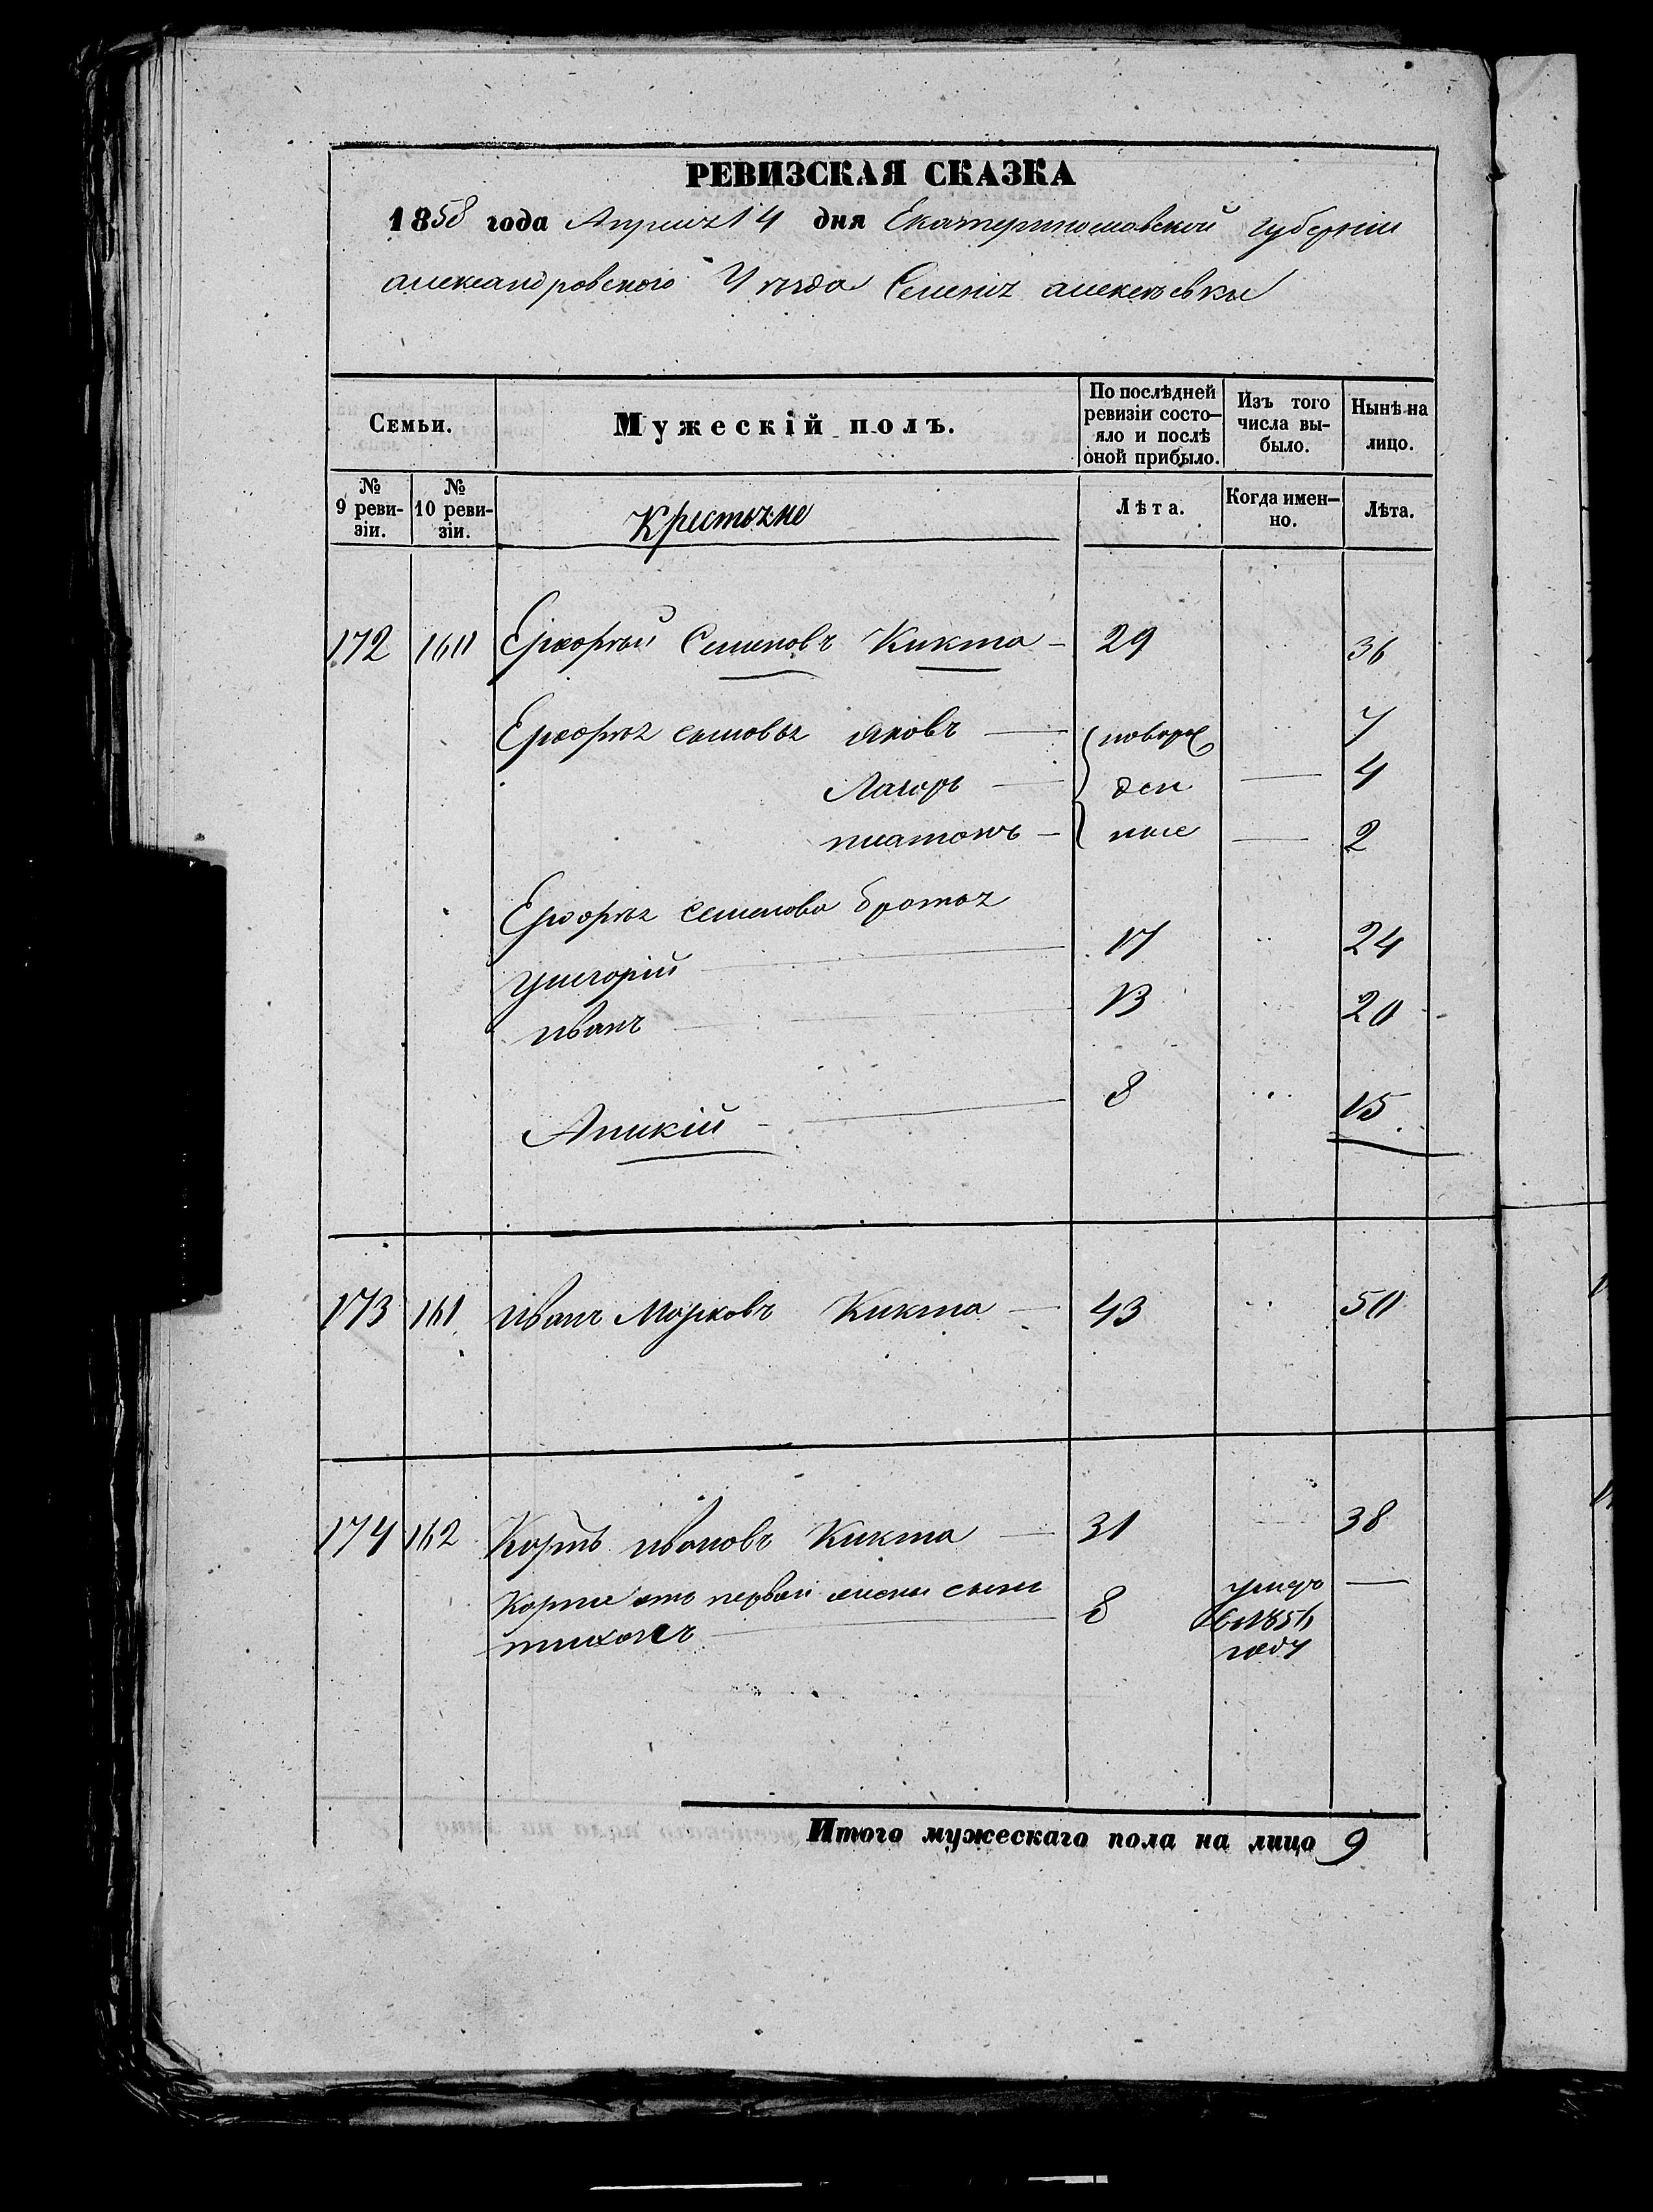 РЕВИЗСКАЯ СКАЗКА
1858 года Апреля 14 дня Екатеринославской губернии
александровского Уезда Селения алексеевки
Семьи.
Мужескій полъ.
По послѣдней ревизіи состо-яло и послѣ оной прибыло.
Изъ того числа вы-было.
Нынѣ на лицо.
№ 9 реви-зіи.
№ 10 реви-зіи.
Крестяне
Лѣта.
Когда имен-но.
Лѣта.
172 160 Семеновъ Кикта 29 36
сыновья яковъ новорож 7
ден 4
платонъ ные 2
Семенова братья
григорій 17 24
иванъ 13 20
Аникій 8 15
173 161 иванъ Марковъ Кикта 43 50
174 162 Карпъ ивановъ Кикта 31 38
Карпа отъ первой жены сынъ
тихонъ 8 умеръ
в 1856
году
Итого мужескаго пола на лицо 9